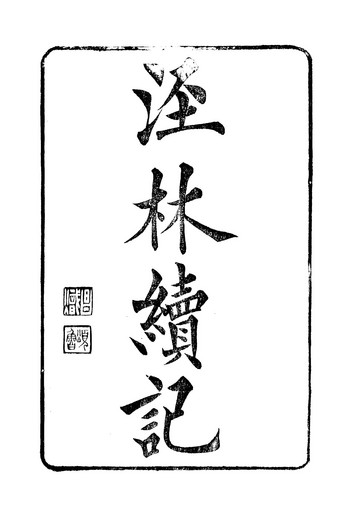 涇林續記